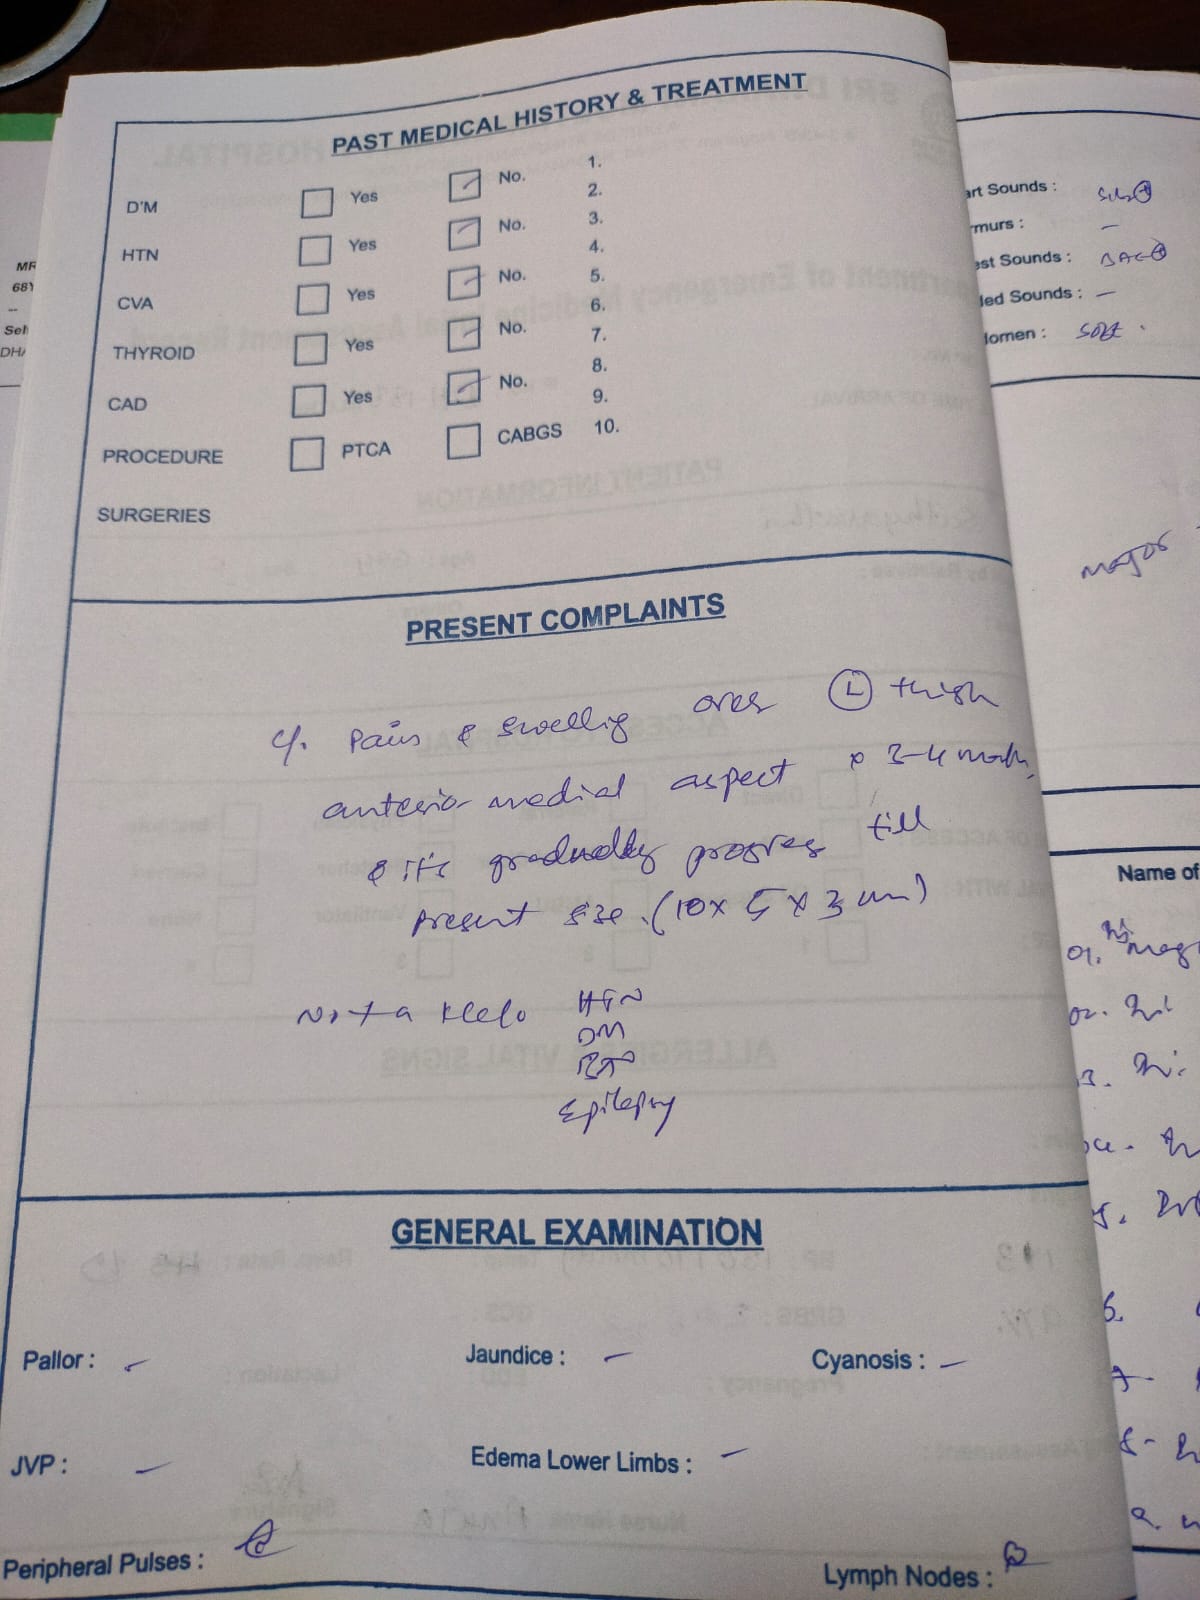 PAST MEDICAL HISTORY & TREATMENT
D'M Yes No. 1.
2.
HTN Yes No. 3.
4.
CVA Yes No. 5.
6.
THYROID Yes No. 7.
8.
CAD Yes No. 9.
PROCEDURE PTCA CABGS 10.
SURGERIES
PRESENT COMPLAINTS
c/o Pain & swellig over Ⓛ thigh
anterio-medial aspect x 3-4 month
& it's gradually progres till
present size. (10 x 5 x 3 cm)
Not a k/c/o HTN
DM
Epilepsy
GENERAL EXAMINATION
Pallor : - Jaundice : - Cyanosis : -
JVP : - Edema Lower Limbs : -
Peripheral Pulses :
Lymph Nodes :
MR
68Y
--
Sel
DHA
art Sounds : S1S2⊕
rmurs : -
est Sounds : BAE⊕
ded Sounds : -
domen : soft
major
Name of
01.
02.
6.